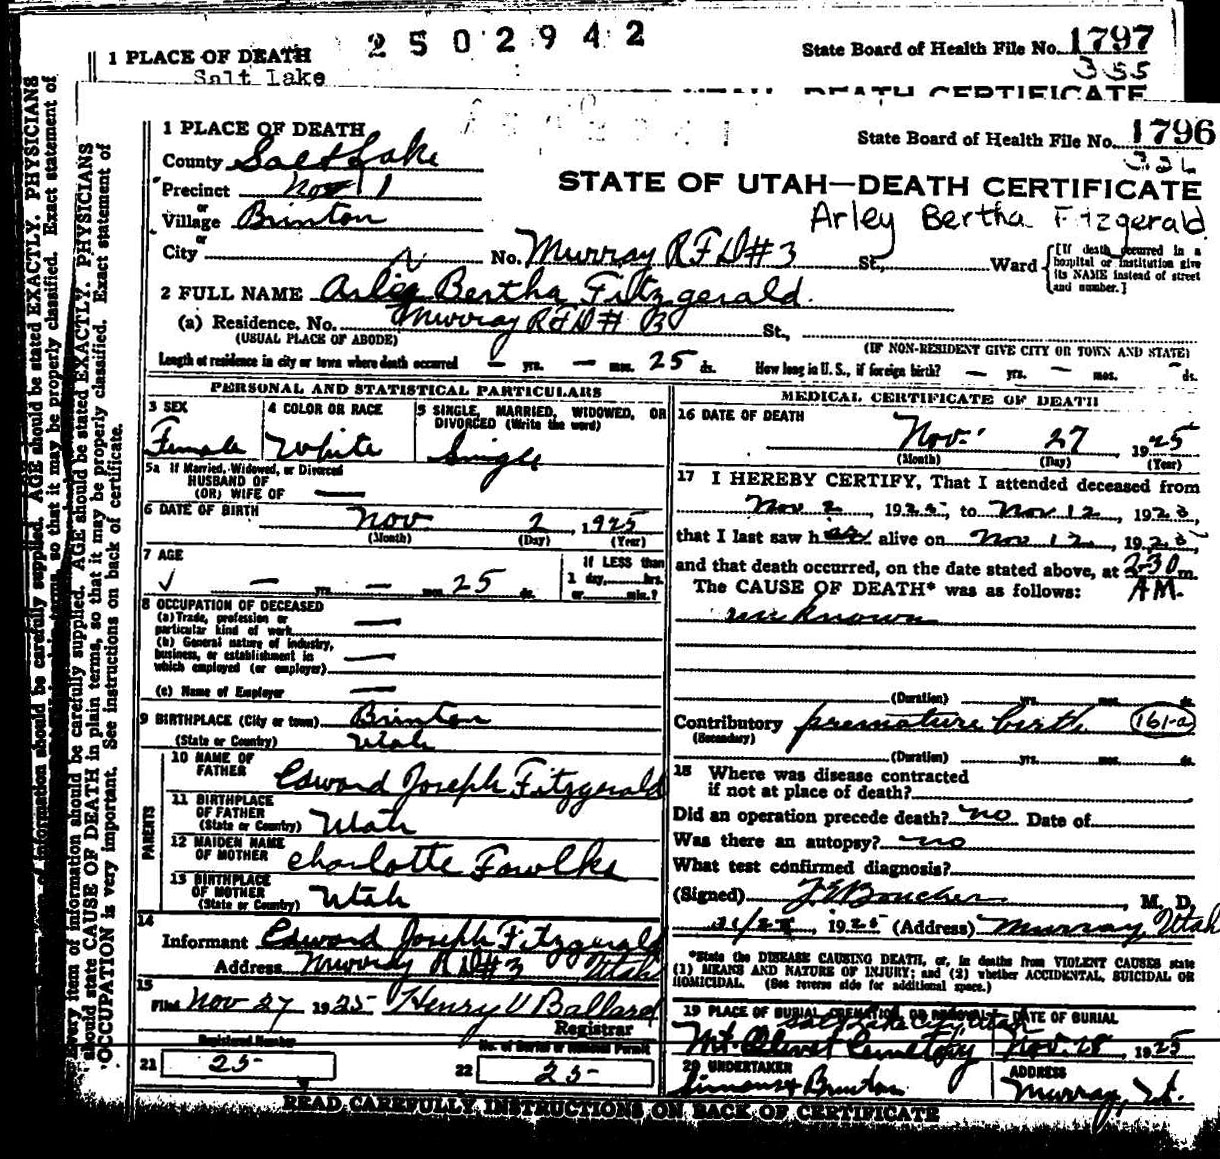 2502942
1 PLACE OF DEATH
Salt Lake
State Board of Health File No. 1797
355
DEATH CERTIFICATE
1 PLACE OF DEATH
State Board of Health File No. 1796
County Salt Lake
Precinct No 1
or
Village Brinton
or
City
STATE OF UTAH—DEATH CERTIFICATE
Arley Bertha Fitzgerald
No. Murray RFD #3 St., Ward
[If death occurred in a hospital or institution give its NAME instead of street and number.]
2 FULL NAME Arley Bertha Fitzgerald.
(a) Residence. No. Murray RFD # 3 St.,
(USUAL PLACE OF ABODE)
(IF NON-RESIDENT GIVE CITY OR TOWN AND STATE)
Length of residence in city or town where death occurred — yrs. — mos. 25 ds. How long in U. S., if foreign birth? — yrs. — mos. — ds.
PERSONAL AND STATISTICAL PARTICULARS
3 SEX
Female
4 COLOR OR RACE
White
5 SINGLE, MARRIED, WIDOWED, OR
DIVORCED (Write the word)
Single
5a If Married, Widowed, or Divorced
HUSBAND OF
(OR) WIFE OF —
6 DATE OF BIRTH
Nov 2, 1925
(Month) (Day) (Year)
7 AGE
— yrs. — mos. 25 ds.
If LESS than
1 day, hrs.
or min.?
8 OCCUPATION OF DECEASED
(a) Trade, profession or
particular kind of work —
(b) General nature of industry,
business, or establishment in
which employed (or employer) —
(c) Name of Employer —
9 BIRTHPLACE (City or town) Brinton
(State or Country) Utah
PARENTS
10 NAME OF
FATHER Edward Joseph Fitzgerald
11 BIRTHPLACE
OF FATHER
(State or Country) Utah
12 MAIDEN NAME
OF MOTHER Charlotte Fowlks
13 BIRTHPLACE
OF MOTHER
(State or Country) Utah
14
Informant Edward Joseph Fitzgerald
Address Murray RD #3 Utah
15
Filed Nov 27 1925 Henry V Ballard
Registrar
Registered Number
No. of Burial or Removal Permit
21 25
22 25
MEDICAL CERTIFICATE OF DEATH
16 DATE OF DEATH
Nov. 27 1925
(Month) (Day) (Year)
17 I HEREBY CERTIFY, That I attended deceased from
Nov 2, 1925, to Nov 12, 1925,
that I last saw her alive on Nov 12, 1925
and that death occurred, on the date stated above, at 2-30 m.
The CAUSE OF DEATH* was as follows: AM.
unknown
(Duration) yrs. mos. ds.
Contributory premature birth 161-a
(Secondary)
(Duration) yrs. mos. ds.
18 Where was disease contracted
if not at place of death?
Did an operation precede death? no Date of
Was there an autopsy? no
What test confirmed diagnosis?
(Signed) Boucher, M. D.
, 1925 (Address) Murray Utah
*State the DISEASE CAUSING DEATH, or, in deaths from VIOLENT CAUSES state
(1) MEANS AND NATURE OF INJURY; and (2) whether ACCIDENTAL, SUICIDAL OR
HOMICIDAL. (See reverse side for additional space.)
19 PLACE OF BURIAL, CREMATION, OR REMOVAL DATE OF BURIAL
Salt Lake City, Utah
Mt. Olivet Cemetery Nov. 28, 1925
20 UNDERTAKER
ADDRESS
Murray, Ut.
READ CAREFULLY INSTRUCTIONS ON BACK OF CERTIFICATE
Every item of information should be carefully supplied. AGE should be stated EXACTLY. PHYSICIANS
should state CAUSE OF DEATH in plain terms, so that it may be properly classified. Exact statement of
OCCUPATION is very important. See instructions on back of certificate.